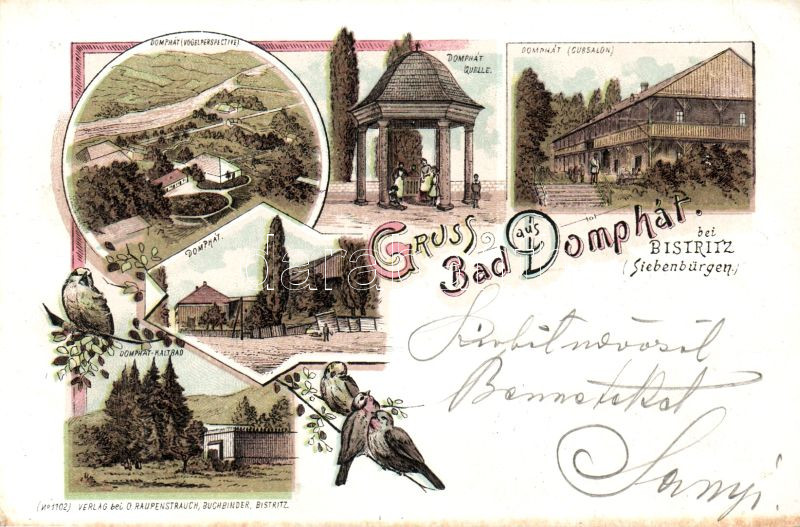 DOMPHÁT (VOGELPERSPECTIVE)
DOMPHÁT
QUELLE.
DOMPHÁT (CURSALON)
DOMPHÁT.
GRUSS aus
Bad Domphát.
bei
BISTRITZ
(Siebenbürgen)
DOMPHÁT-KALTBAD
Benneteket
Sanyi
(No 1102) VERLAG bei O. RAUPENSTRAUCH, BUCHBINDER, BISTRITZ.